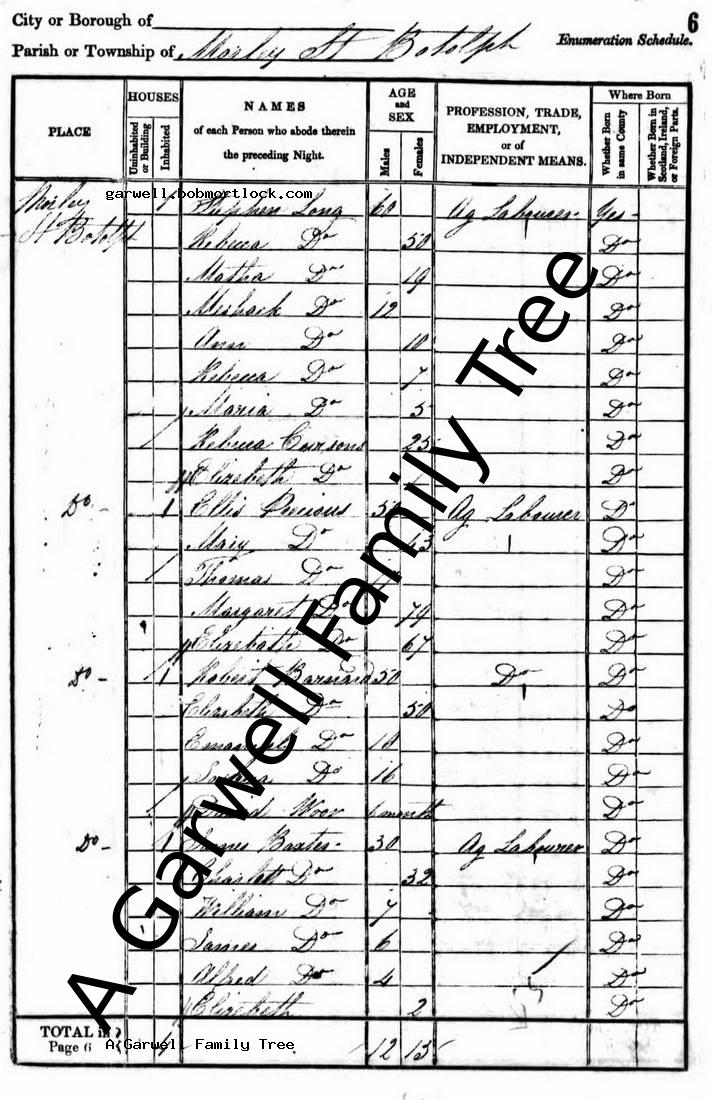 6
City or Borough of
Parish or Township of Morley St Botolph
Enumeration Schedule.
PLACE
HOUSES
Uninhabited or Building
Inhabited
NAMES
of each Person who abode therein
the preceding Night.
AGE
and
SEX
Males
Females
PROFESSION, TRADE,
EMPLOYMENT,
or of
INDEPENDENT MEANS.
Where Born
Whether Born in same County
Whether Born in Scotland, Ireland, or Foreign Parts.
garwell.bobmortlock.com
Morley 1 Stephen Long 60 Ag Labourer Yes
St Botolph Rebecca Do 50 Do
Matha Do 19 Do
Meshack Do 12 Do
Ann Do 10 Do
Rebecca Do 7 Do
Maria Do 5 Do
Rebecca Cursons 25 Do
Elizabeth Do Do
Do 1 Ellis Precious Ag Labourer Do
Mary Do Do
Thomas Do Do
Margaret Do 74 Do
Elizabeth Do 67 Do
Do 1 Robert Barnard 50 Do Do
Elizabeth Do 50 Do
Do 10 Do
Do 16 Do
6 months Do
Do 1 James Baxter 30 Ag Labourer Do
Charlott Do 32 Do
William Do 7 Do
James Do 6 Do
Alfred Do 4 Do
Elizabeth 2 Do
TOTAL in
Page 6 4 12 13
A Garwell Family Tree
A Garwell Family Tree